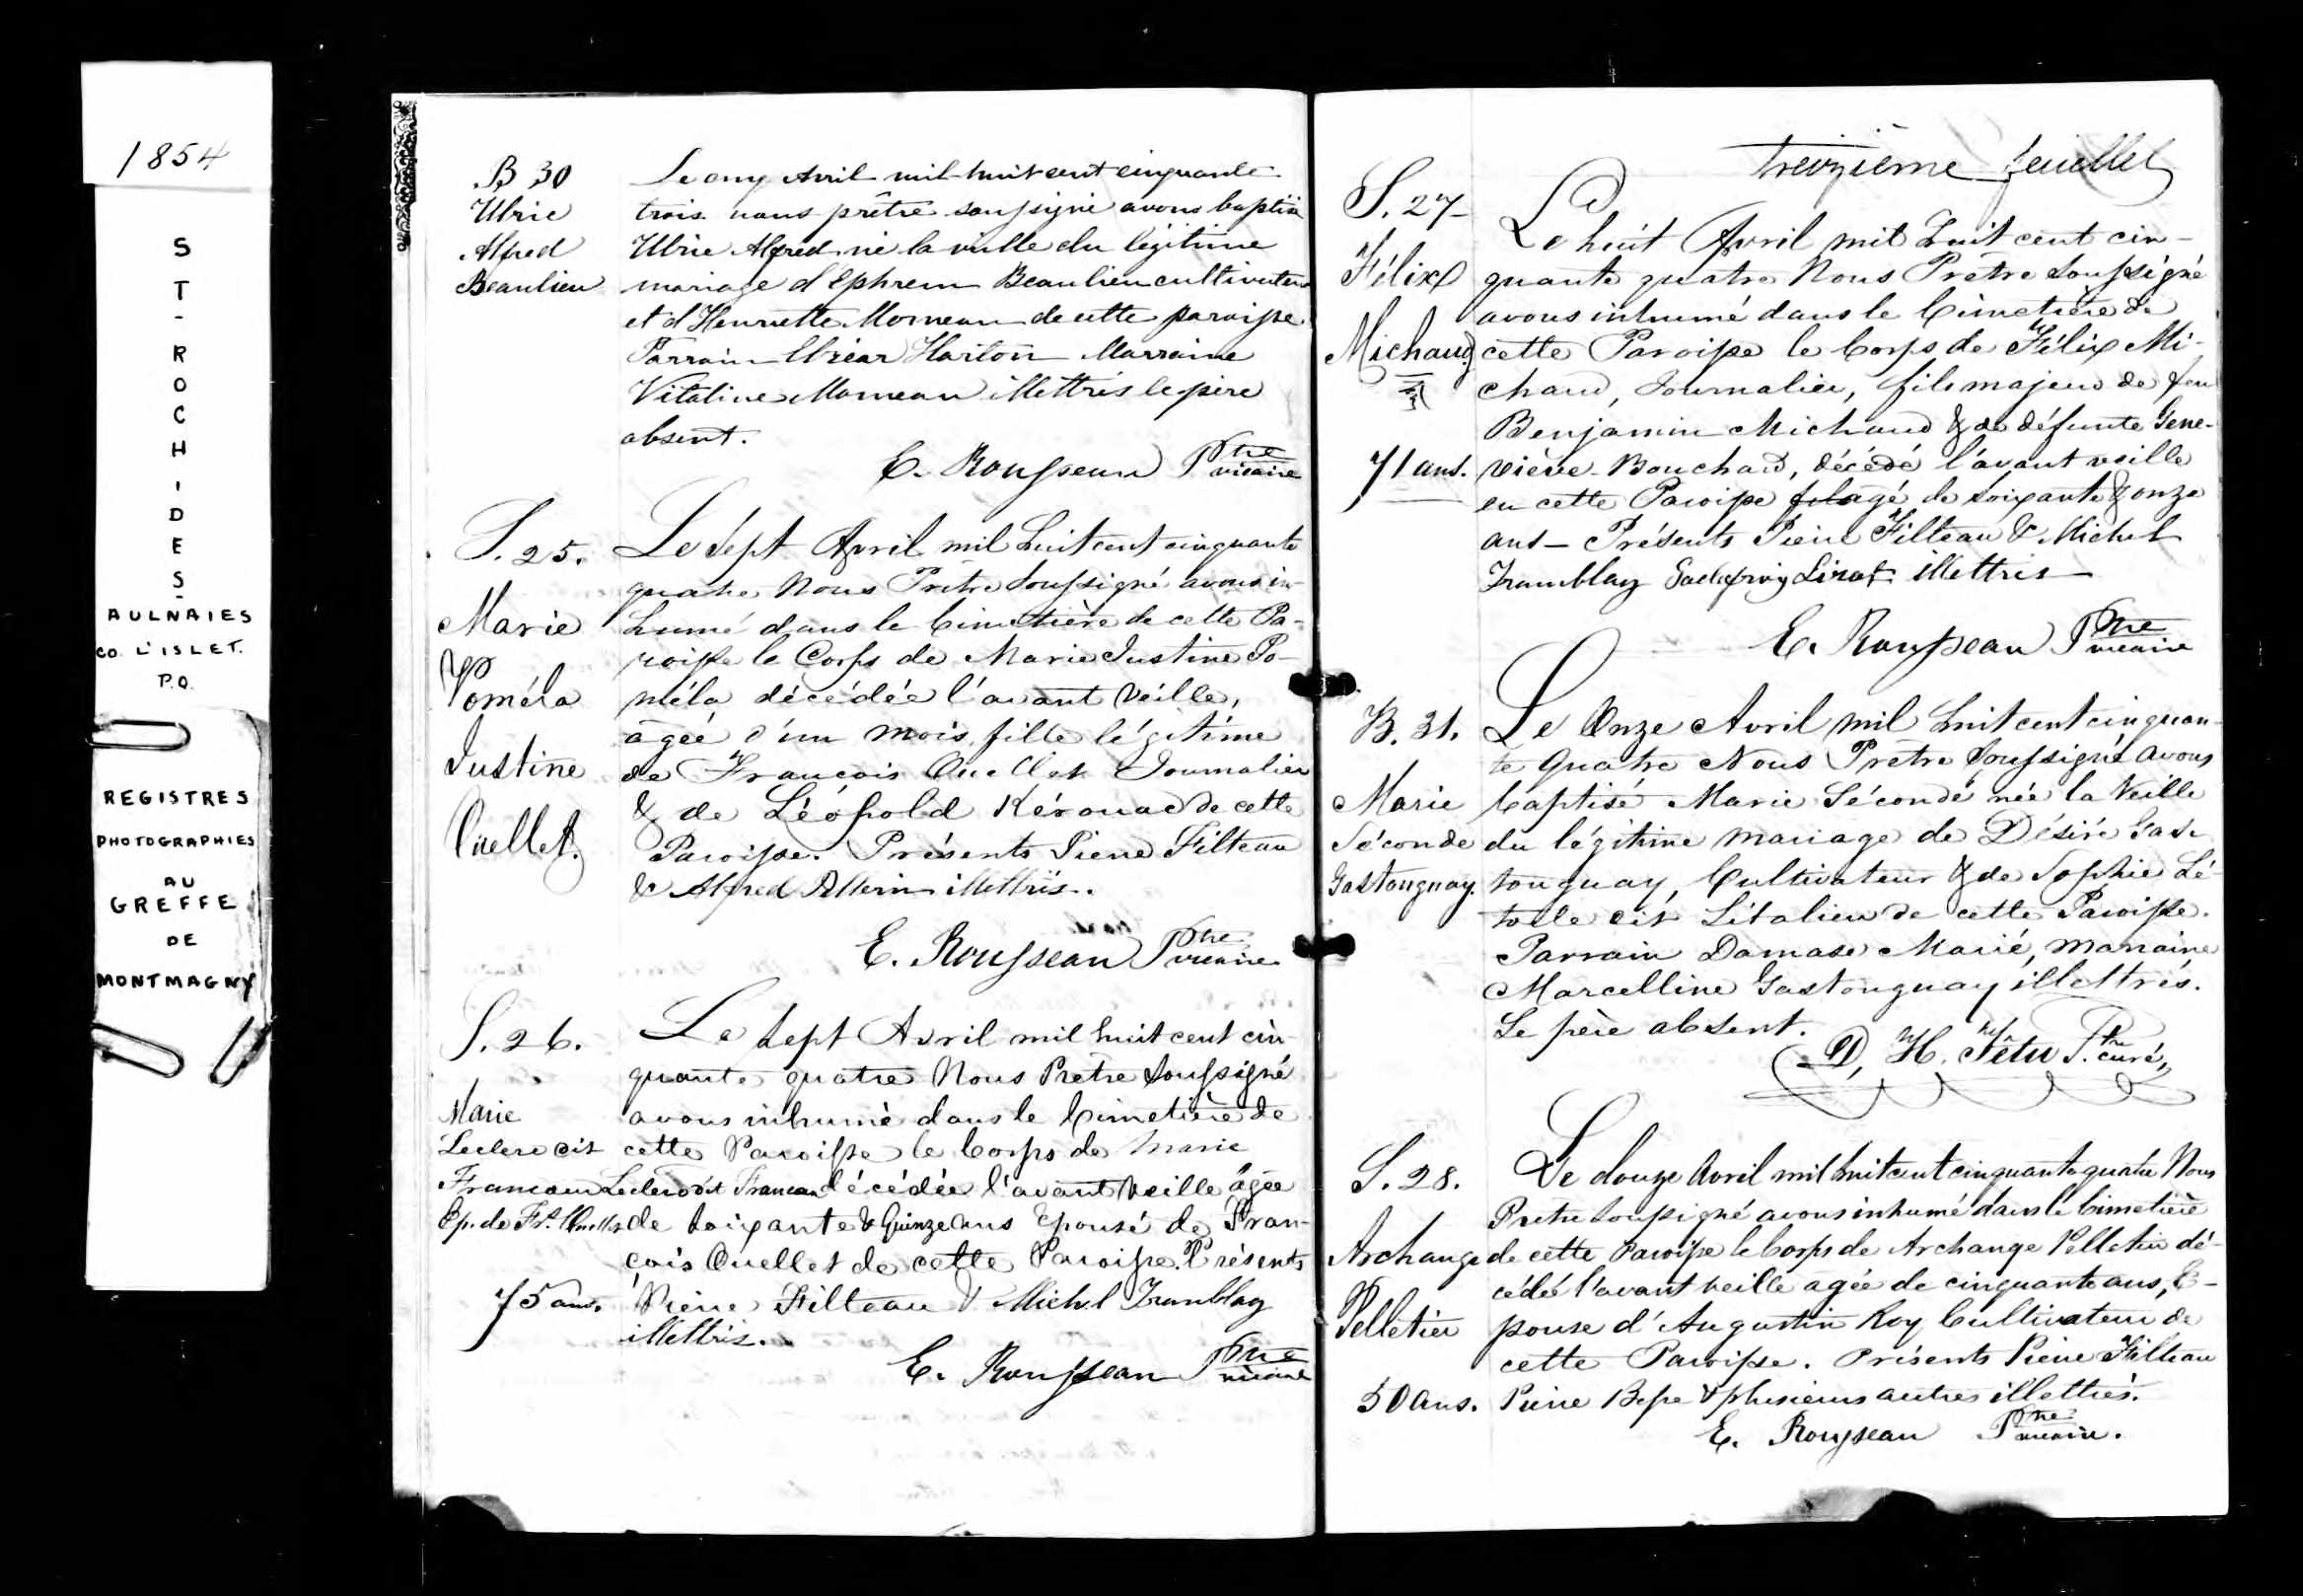 1854
ST-ROCH-DES-
AULNAIES
CO. L'ISLET.
P.Q.
REGISTRES
PHOTOGRAPHIES
AU
GREFFE
DE
MONTMAGNY
B 30
Ulric
Alfred
Beaulieu
Le onze Avril mil huit cent cinquante
trois nous prêtre soussigné avons baptisé
Ulric Alfred né la veille du légitime
mariage d'Ephrem Beaulieu cultivateur
et d'Henriette Morneau de cette paroisse.
Parrain Harton Marraine
Vitaline Morneau illettrés le père
absent.
E. Rousseau Ptre vicaire
S. 25.
Marie
Poméla
Justine
Ouellet.
Le Sept Avril mil huit cent cinquante
quatre Nous Prêtre Soussigné avons in-
humé dans le Cimetière de cette Pa-
roisse le Corps de Marie Justine Po-
méla décédée l'avant veille,
âgée d'un mois, fille légitime
de François Ouellet Journalier
& de Léopold Kérouac de cette
Paroisse. Présents Pierre Filteau
& Alfred illettrés.
E. Rousseau Ptre vicaire
S. 26.
Marie
Leclerc dit
Francoeur
Ep. de Frs. Ouellet
75 ans.
Le Sept Avril mil huit cent cin-
quante quatre Nous Prêtre Soussigné
avons inhumé dans le Cimetière de
cette Paroisse le Corps de Marie
Leclerc dit Francoeur décédée l'avant veille âgée
de Soixante & Quinze ans Epouse de Fran-
çois Ouellet de cette Paroisse. Présents
Pierre Filteau & Michel Tremblay
illettrés.
E. Rousseau Ptre vicaire
treizième feuillet
S. 27
Félix
Michaud
71 ans.
Le huit Avril mil huit cent cin-
quante quatre Nous Prêtre Soussigné
avons inhumé dans le Cimetière de
cette Paroisse le Corps de Félix Mi-
chaud, Journalier, fils majeur de feu
Benjamin Michaud & de défunte Gene-
viève Bouchard, décédé l'avant veille
en cette Paroisse âgé de soixante & onze
ans - Présents Pierre Filteau & Michel
Tremblay illettrés
E. Rousseau Ptre vicaire
B. 31.
Marie
Séconde
Gastonguay.
Le Onze Avril mil huit cent cinquan-
te quatre Nous Prêtre Soussigné avons
baptisé Marie Séconde née la Veille
du légitime mariage de Désiré Gas-
tonguay, Cultivateur & de Sophie Lé-
toile dit Litalien de cette Paroisse.
Parrain Damase Marié, marraine
Marcelline Gastonguay illettrés.
Le père absent.
D. H. Têtu Ptre curé,
S. 28.
Archange
Pelletier
50 ans.
Le douze Avril mil huit cent cinquante quatre Nous
Prêtre Soussigné avons inhumé dans le Cimetière
de cette Paroisse le Corps de Archange Pelletier dé-
cédée l'avant veille agée de cinquante ans, E-
pouse d'Augustin Roy Cultivateur de
cette Paroisse. Présents Pierre Filteau
Pierre & plusieurs autres illettrés.
E. Rousseau Ptre vicaire.